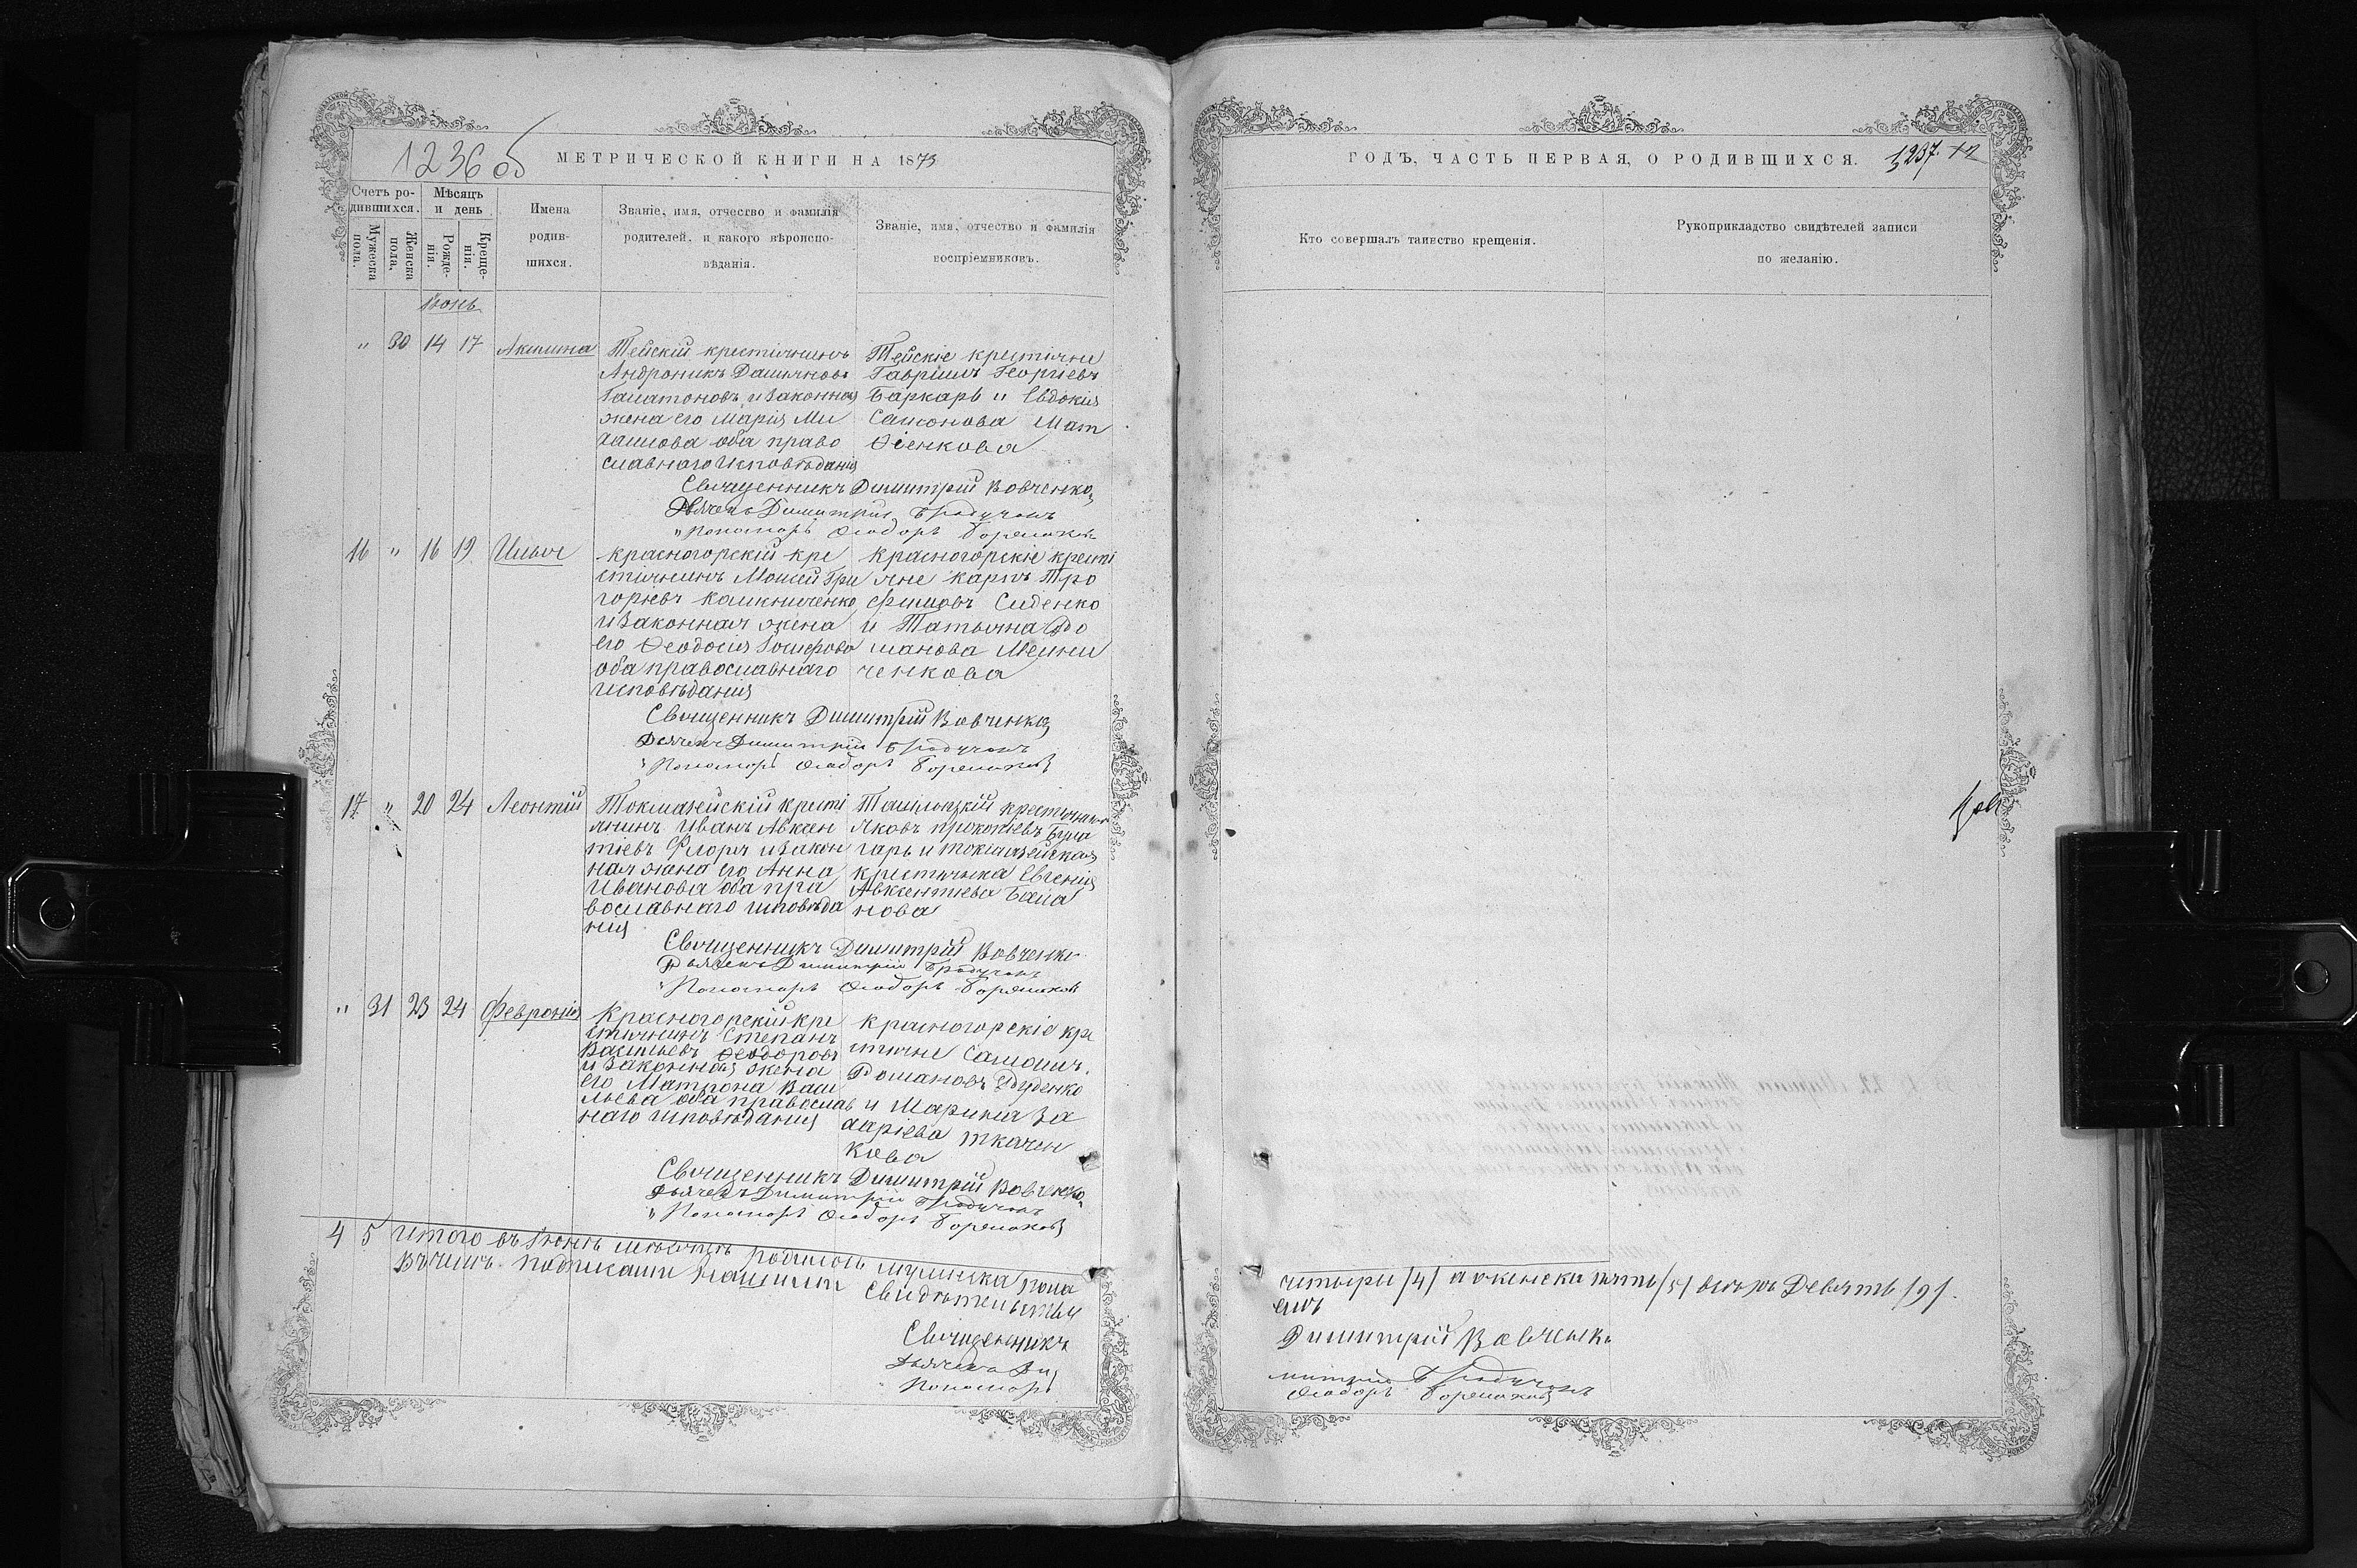 1236 об
МЕТРИЧЕСКОЙ КНИГИ НА 1873
Счетъ ро-
дившихся.
Мужеска пола.
Женска пола.
Мѣсяцъ
и день
Рожде-
нія.
Креще-
нія.
Имена
родив-
шихся.
Званіе, имя, отчество и фамилія
родителей, и какого вѣроиспо-
вѣданія.
Званіе, имя, отчество и фамилія
воспріемниковъ.
Іюнь
" 30 14 17 Акилина
Тейскій крестіянинъ
Андроникъ Даміановъ
и законная
жена его Марія Ми
хаилова оба право
славнаго исповѣданія
Тейскіе крестіяне
Гавріилъ Георгіевъ
Баркарь и Евдокія
Самсонова Мат
ѳіенкова
Священникъ Димитрій Вовченко
Дьячекъ Димитрій
Пономарь Ѳеодоръ
16 " 16 19 Илья
Красногорскій кре
стіянинъ Моисей Гри
горіевъ Калиниченко
и законная жена
его Ѳеодосія
оба православнаго
исповѣданія
Красногорскіе крест
яне Карпъ Тро
фимовъ Сиденко
и Татьяна Ро
манова Мельни
ченкова
Священникъ Димитрій Вовченко
Дьячекъ Димитрій
Пономарь Ѳеодоръ
17 " 20 24 Леонтій
Токмазейскій крест
янинъ Иванъ Авксен
тіевъ Флоря и закон
ная жена его Анна
Иванова оба пра
вославнаго исповѣда
нія
крестянинъ
Яковъ Прокопіевъ Булга
гарь и Токмазейская
крестянка Евгенія
Авксентіева Бала
нова
Священникъ Димитрій Вовченко
Дьячекъ Димитрій
Пономарь Ѳеодоръ
" 31 23 24 Февронія
Красногорскій кре
стянинъ Степанъ
Васильевъ Ѳеодоровъ
и законная жена
его Матрона Васи
льева оба православ
наго исповѣданія
Красногорскіе кре
стяне Самоилъ
Романовъ Дуденко
и Марина За
харіева Ткачен
кова
Священникъ Димитрій Вовченко
Дьячекъ Димитрій
Пономарь Ѳеодоръ
4 5 Итого въ Іюнѣ мѣсяцѣ родилось мужеска пола
Въ чемъ подписами нашими свидѣтельству
Священникъ
Дьячекъ Ди
Пономарь
ГОДЪ, ЧАСТЬ ПЕРВАЯ, О РОДИВШИХСЯ.
1237
Кто совершалъ таинство крещенія.
Рукоприкладство свидѣтелей записи
по желанію.
четыре /4/ а женска пять /5/ всѣхъ Девять /9/.
емъ
Димитрій Вовченко
митрій
Ѳеодоръ